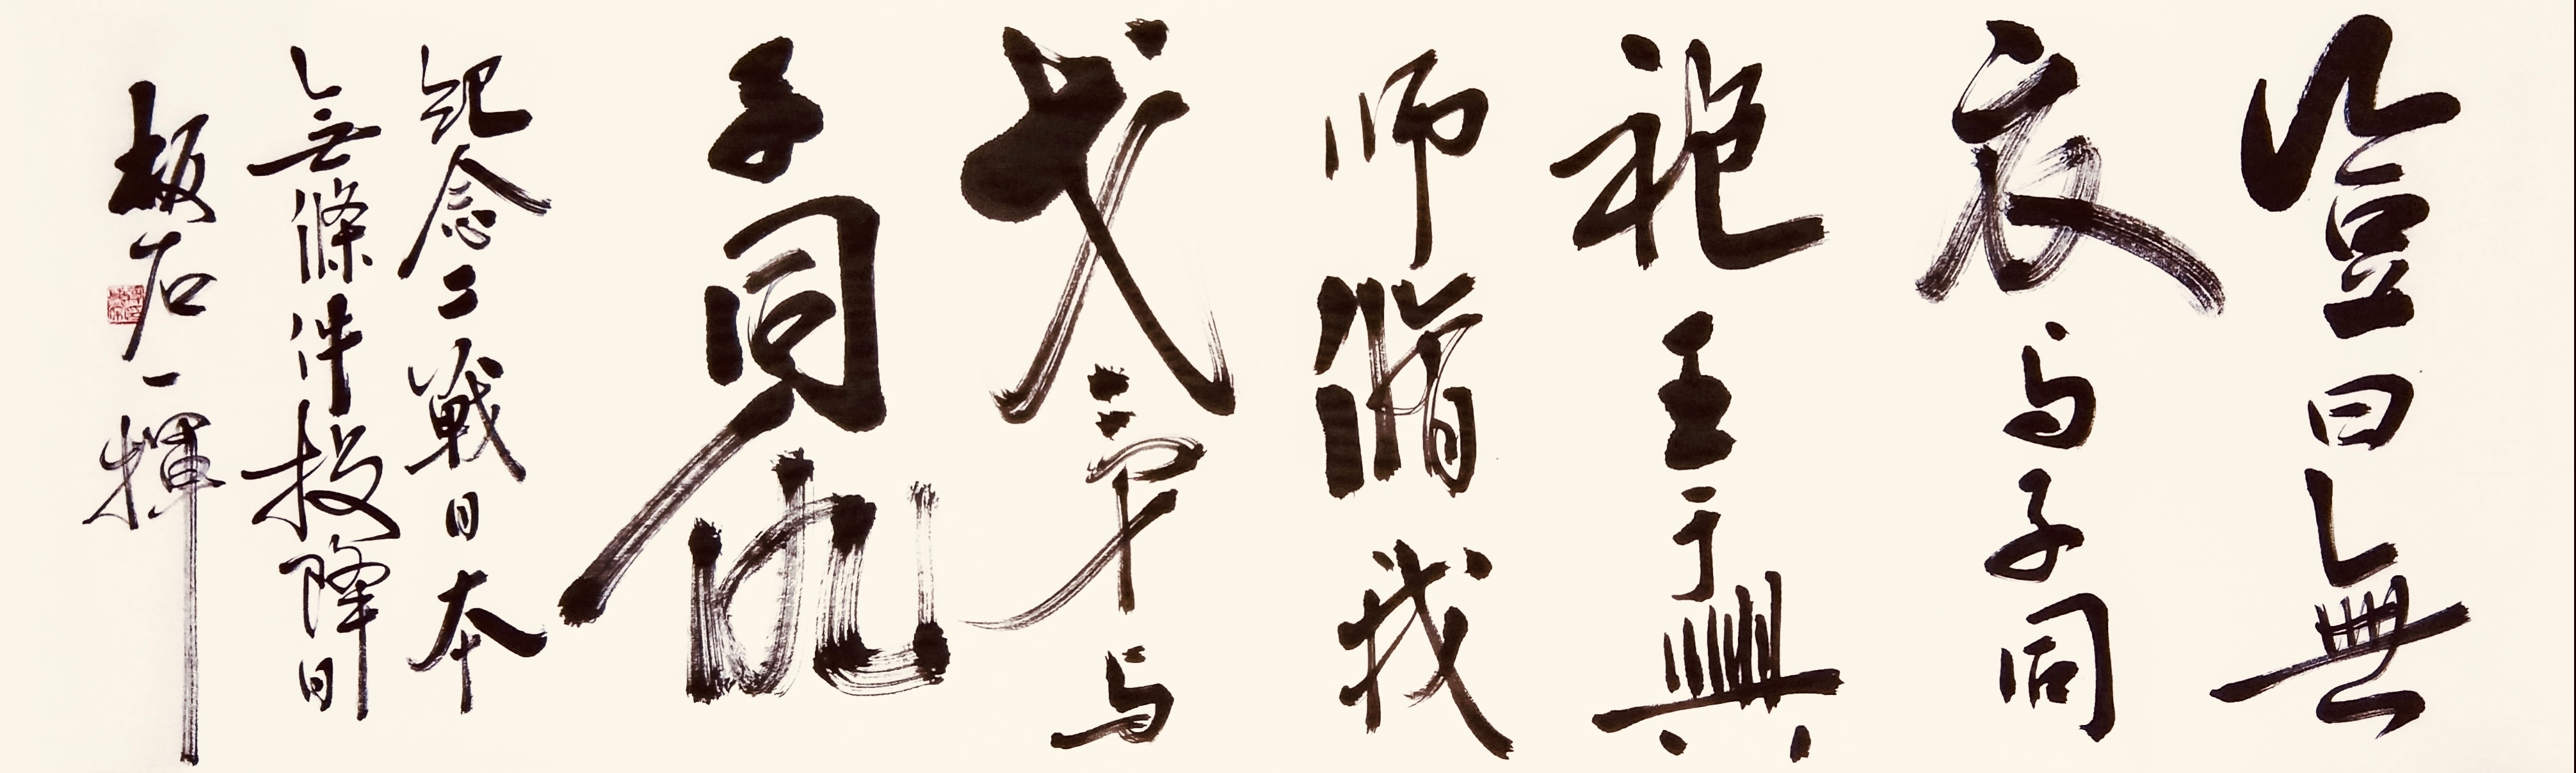 豈曰無
衣与子同
袍王于興
师脩我
戈矛与
子同仇
纪念二戰日本
無條件投降日
板石一揮